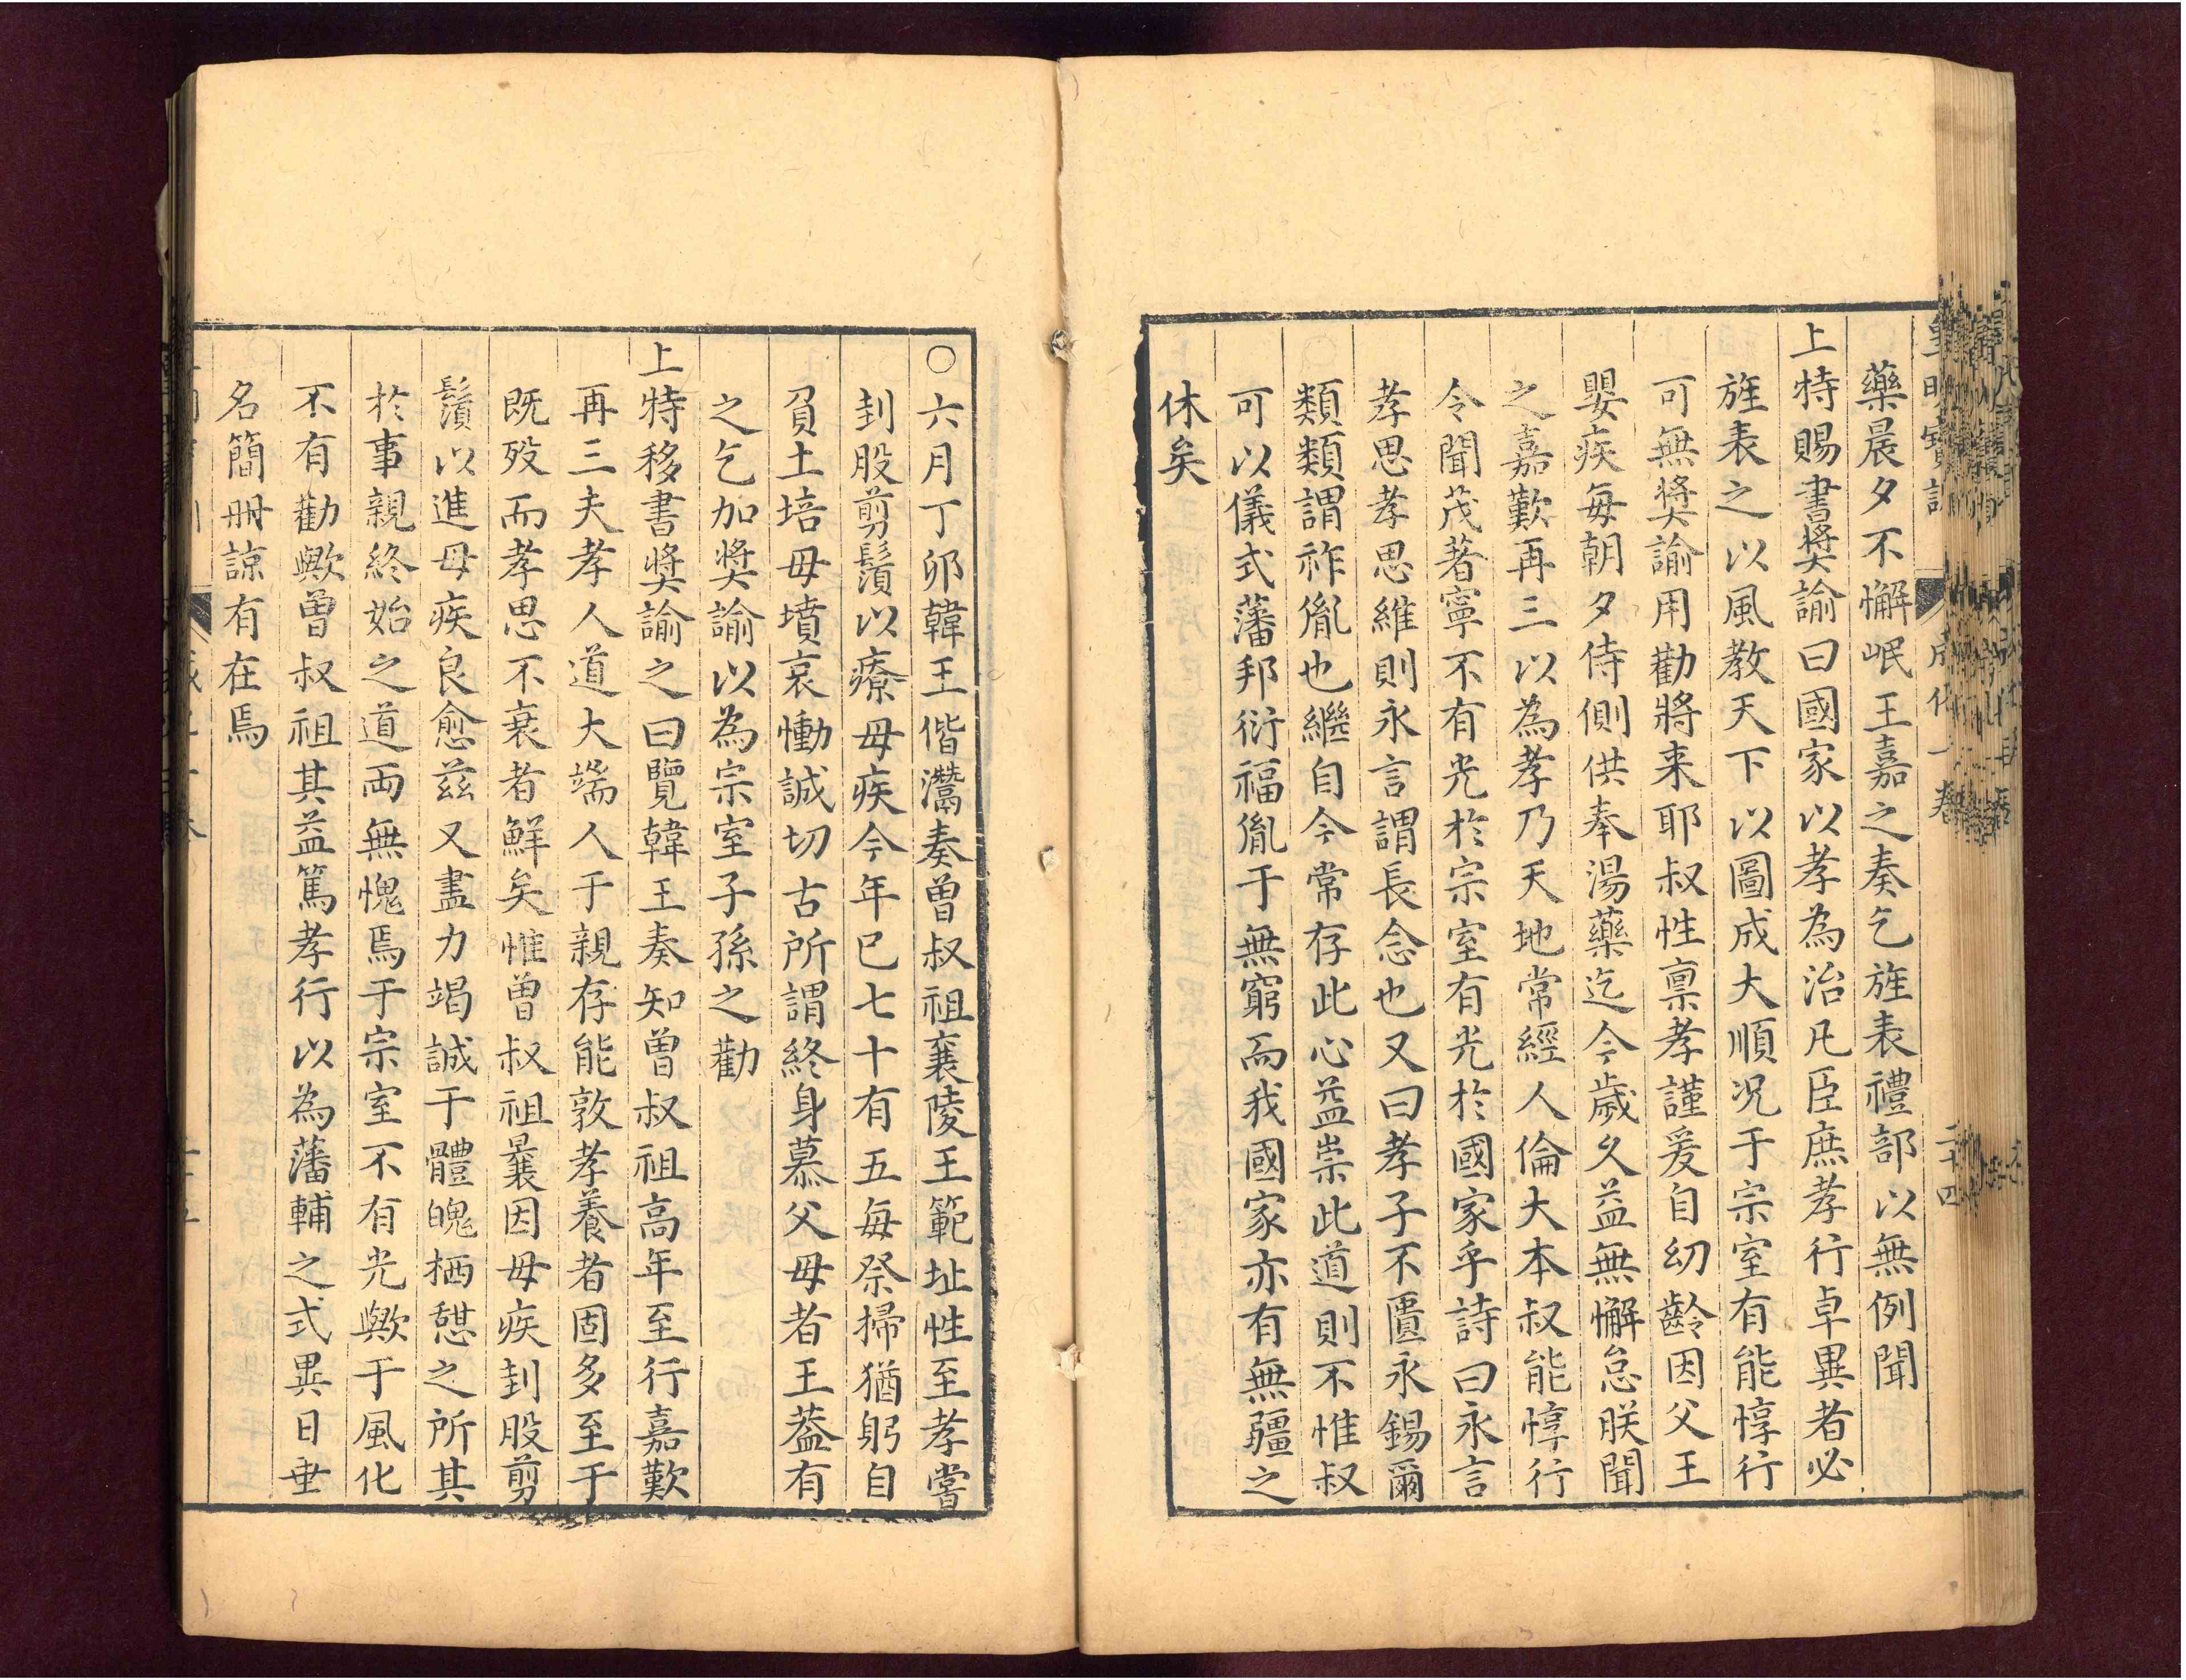 藥晨夕不懈岷王嘉之奏乞旌表禮部以無例聞
上特賜書奬諭曰國家以孝為治凡臣庶孝行卓異者必
旌表之以風教天下以圖成大順况于宗室有能惇行
可無奬諭用勸將来耶叔性禀孝謹爰自㓜齡因父王
嬰疾毎朝夕侍側供奉湯藥迄今歲久益無懈怠朕聞
之嘉歎再三以為孝乃天地常經人倫大本叔能惇行
令聞茂著寧不有光於宗室有光於國家乎詩曰永言
孝思孝思維則永言謂長念也又曰孝子不匱永錫爾
類類謂祚胤也繼自今常存此心益崇此道則不惟叔
可以儀式藩邦衍福胤于無窮而我國家亦有無疆之
休矣
○六月丁卯韓王偕灊奏曾叔祖襄陵王範址性至孝嘗
刲股剪鬚以療母疾今年已七十有五每祭掃猶躬自
負土培母墳哀慟誠切古所謂終身慕父母者王葢有
之乞加奬諭以為宗室子孫之勸
上特移書奬諭之曰覽韓王奏知曾叔祖高年至行嘉歎
再三夫孝人道大端人于親存能敦孝養者固多至于
既歿而孝思不衰者鮮矣惟曾叔祖曩因母疾刲股剪
鬚以進母疾良愈兹又盡力竭誠于體魄栖憇之所其
於事親終始之道両無愧焉于宗室不有光歟于風化
不有勸歟曾叔祖其益篤孝行以為藩輔之式異日垂
名簡冊諒有在焉